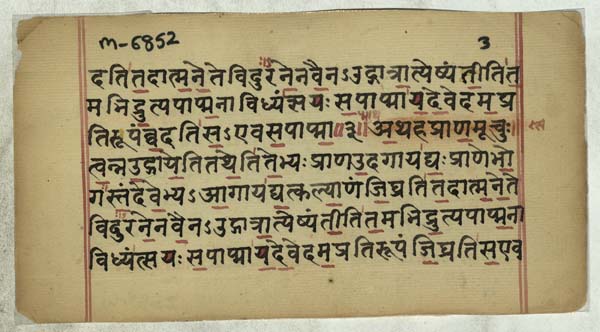 m-6852 3
दतितदात्मनेतेविदुरनेनवैनऽउद्गात्रात्येष्यंतीतित
मभिद्रुत्यपाप्मनाविध्यंत्सयःसपाप्मायदेवेदमप्र
तिरूपंवदतिसऽएवसपाप्मा॥३॥ अथहप्राणमूचुः
त्वन्नउद्गायेतितथेतितेभ्यःप्राणउदगायद्यःप्राणेभो
गस्तंदेवेभ्यऽआगायद्यत्कल्याणंजिघ्रतितदात्मनेते
विदुरनेनवैनऽउद्गात्रात्येष्यंतीतितमभिद्रुत्यपाप्मना
विध्यंत्सयःसपाप्मायदेवेदमप्रतिरूपंजिघ्रतिसएव